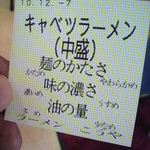 10.12.-7
キャベツラーメン
(中盛)
麺のかたさ
かため やわらかめ
味の濃さ
濃いめ うすめ
油の量
多め
ラーメン